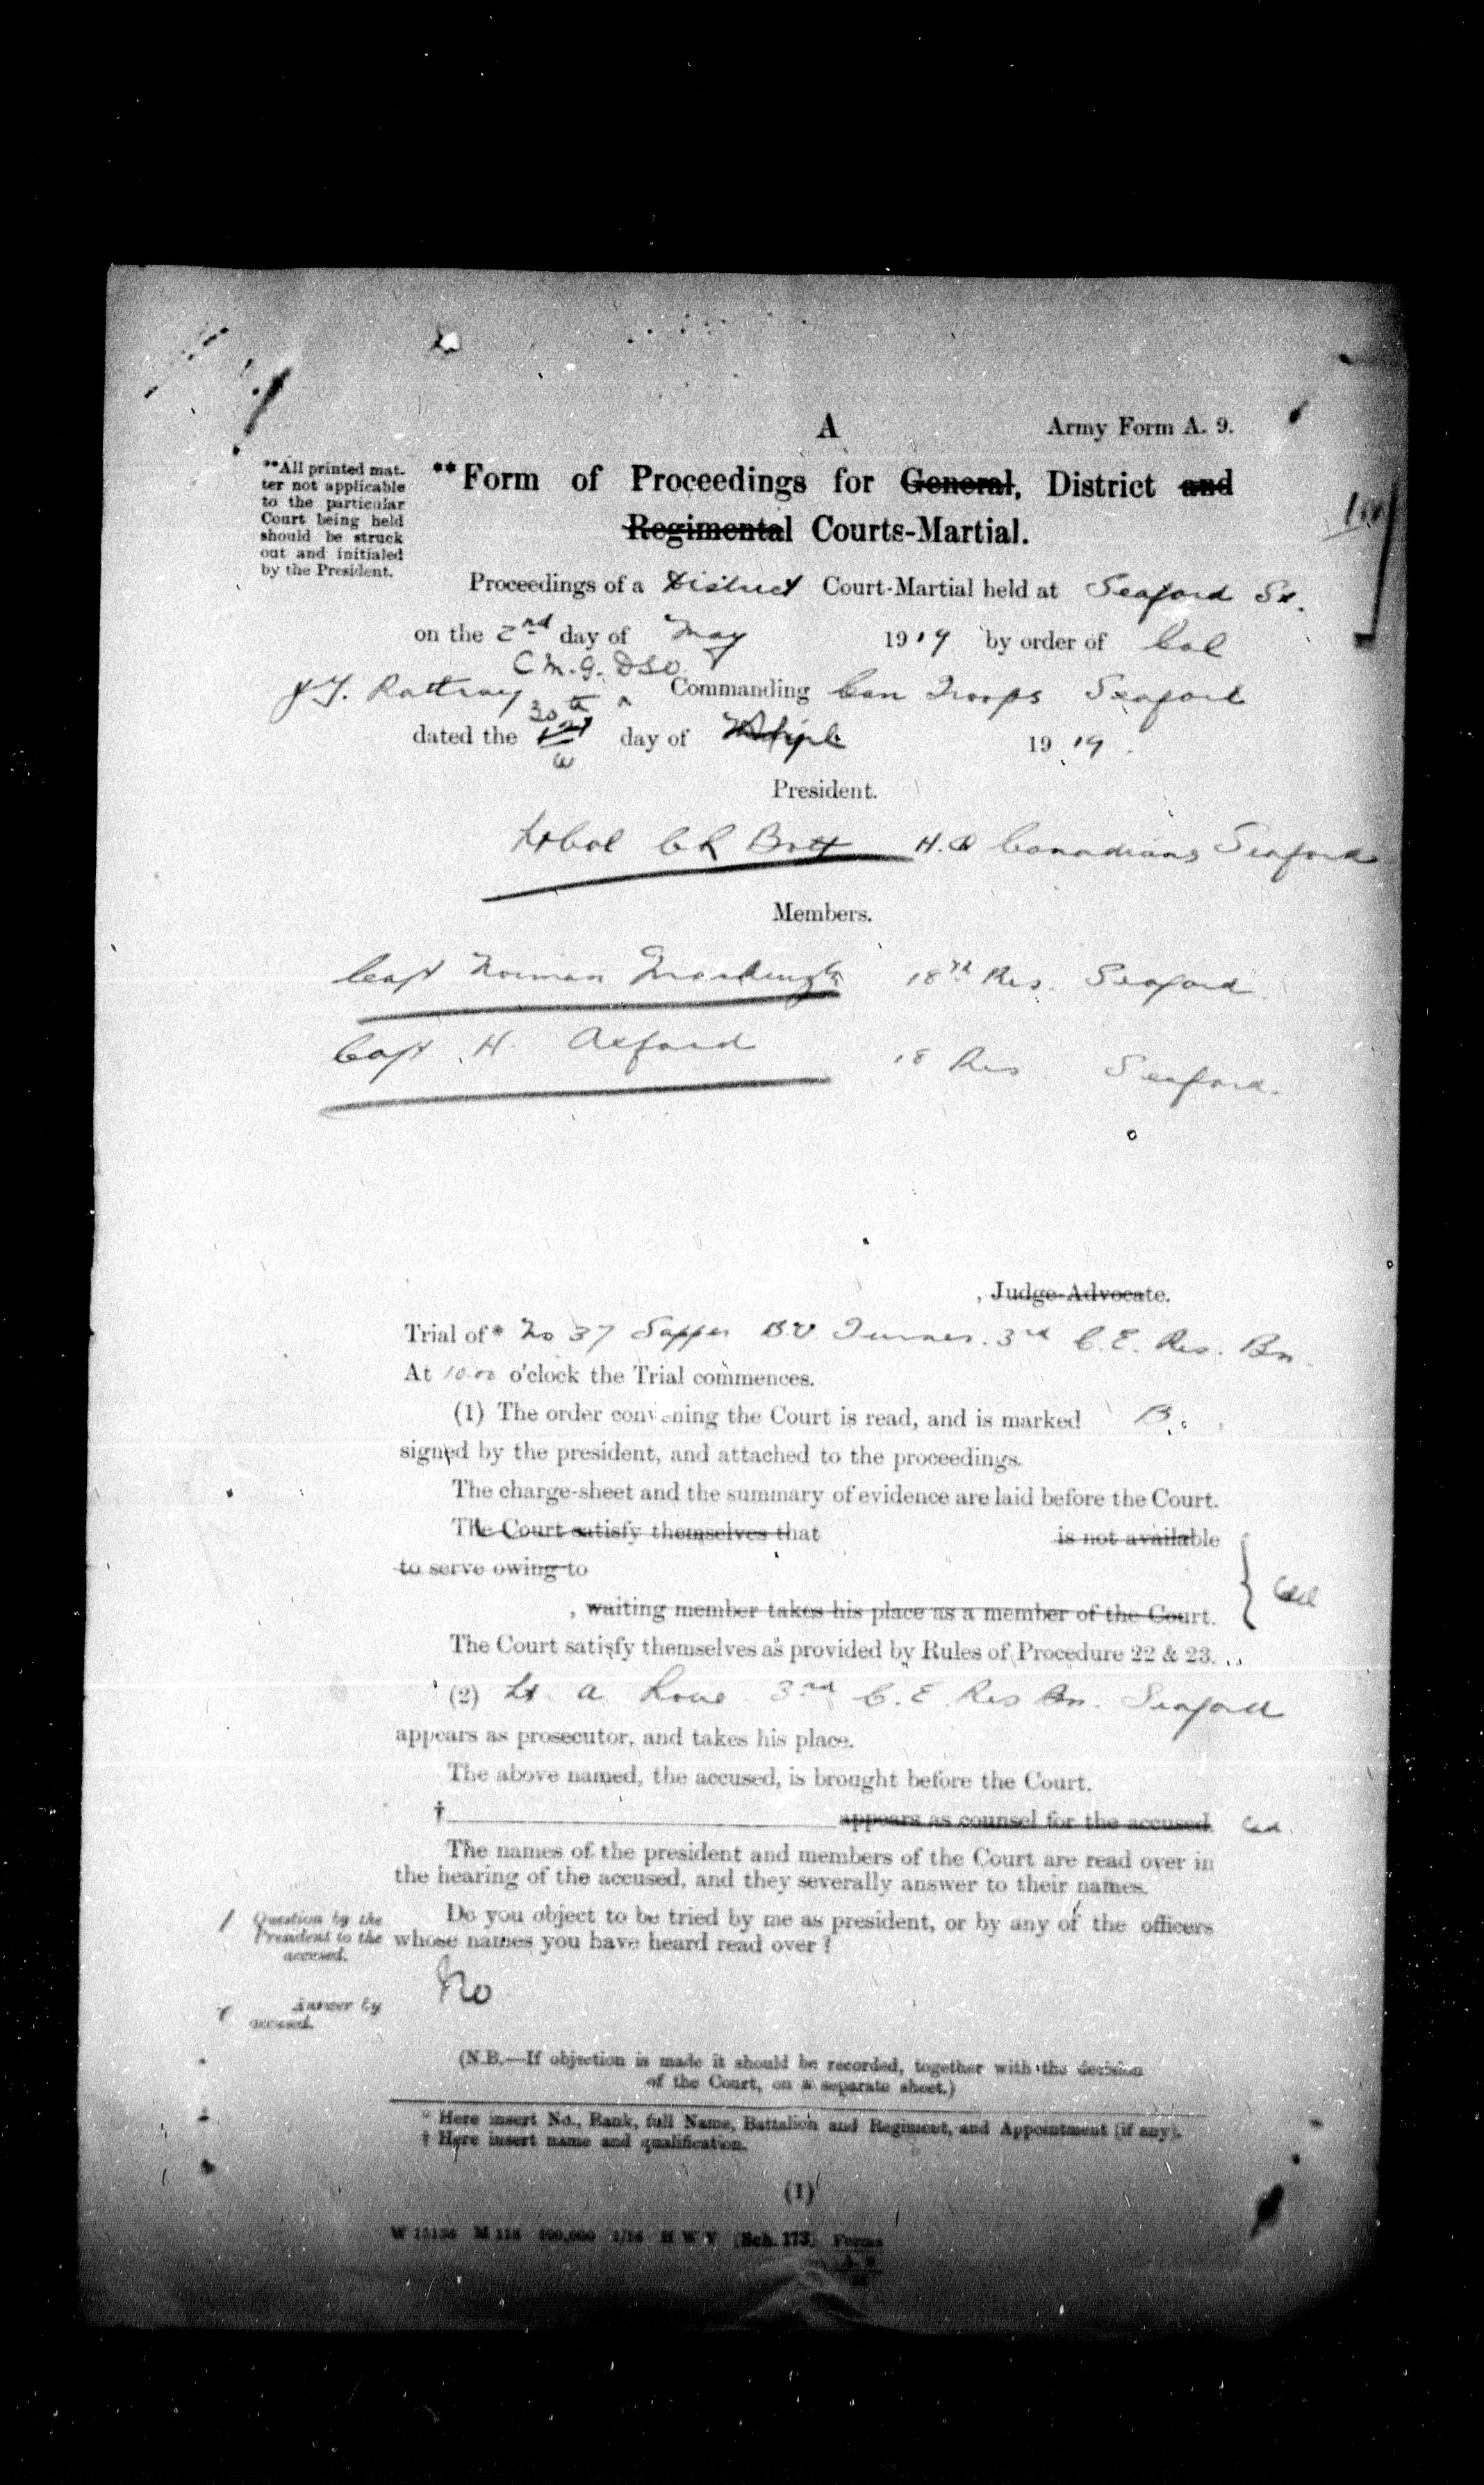 A
Army Form A. 9.
**All printed mat-
ter not applicable
to the particular
Court being held
should be struck
out and initialed
by the President.
**Form of Proceedings for General, District and
Regimental Courts-Martial.
Proceedings of a District Court-Martial held at Seaford Sx.
on the 2nd day of May 1919 by order of Col
C.M.G. DSO
J.G. Rattray Commanding Can Troops Seaford
30th
dated the day of 1919.
President.
Lt Col Bott H.Q Canadians Seaford
Members.
Capt Norman 18th Res. Seaford.
Capt H. Alford 18 Res Seaford.
, Judge-Advocate.
Trial of* No 37 Sapper B.V Turner. 3rd C.E. Res. Bn.
At 10.00 o'clock the Trial commences.
(1) The order convening the Court is read, and is marked B.
signed by the president, and attached to the proceedings.
The charge-sheet and the summary of evidence are laid before the Court.
The Court satisfy themselves that is not available
to serve owing to
, waiting member takes his place as a member of the Court.
The Court satisfy themselves as provided by Rules of Procedure 22 & 23.
(2) Lt. A. Rowe 3rd C.E. Res Bn. Seaford
appears as prosecutor, and takes his place.
The above named, the accused, is brought before the Court.
† appears as counsel for the accused.
The names of the president and members of the Court are read over in
the hearing of the accused, and they severally answer to their names.
Question by the
President to the
accused.
Do you object to be tried by me as president, or by any of the officers
whose names you have heard read over?
Answer by
accused.
No
(N.B.—If objection is made it should be recorded, together with the decision
of the Court, on a separate sheet.)
* Here insert No., Rank, full Name, Battalion and Regiment, and Appointment (if any).
† Here insert name and qualification.
(1)
H W V (Sch. 173) Forms